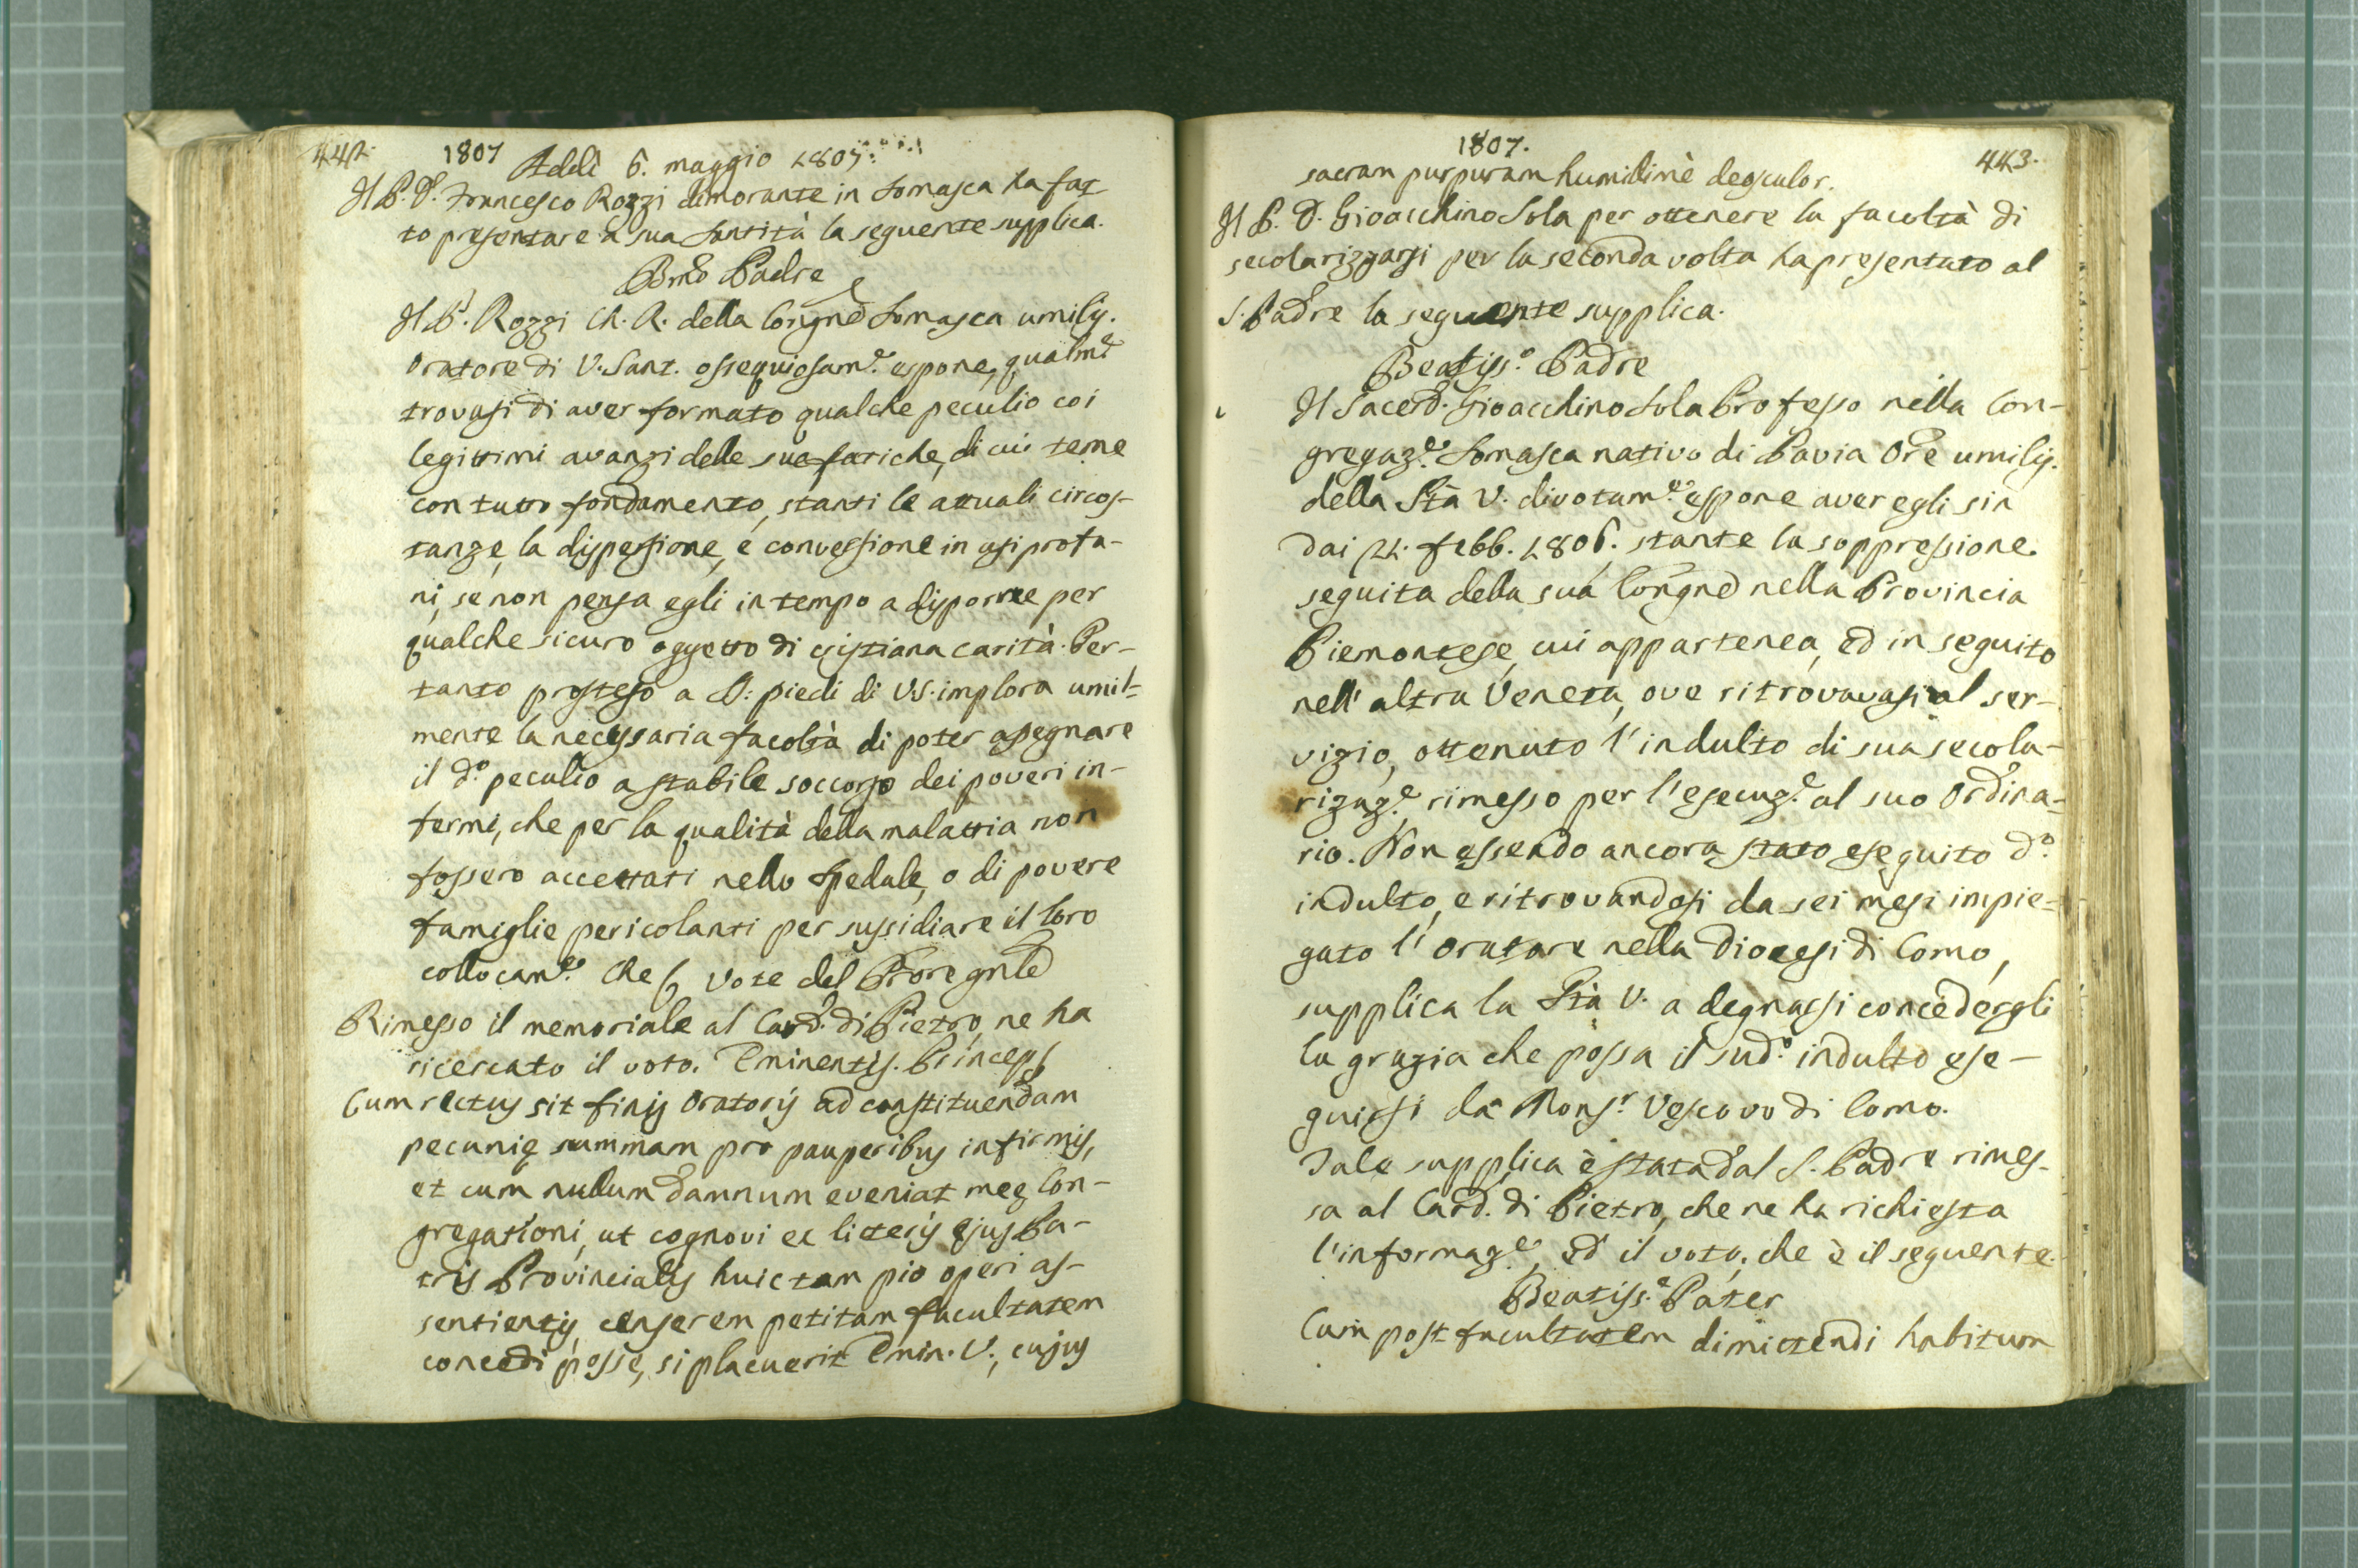 442.
1807
Addì 6. maggio 1807.
Il P. D. Francesco Rozzi dimorante in Somasca ha fat
to presentare a sua Santità la seguente supplica.
Bmo Padre
Il P. Rozzi Ch. R. della Congne Somasca umilis.
Oratore di V. Sant. ossequiosam.e espone, qualme
trovasi di aver formato qualche peculio coi
legittimi avanzi delle sue fatiche, di cui teme
con tutto fondamento, stanti le attuali circos-
tanze, la dispersione, e conversione in usi profa-
ni, se non pensa egli in tempo a disporne per
qualche sicuro oggetto di cristiana carità. Per-
tanto prosteso a S: piedi di VS. implora umil-
mente la necessaria facoltà di poter assegnare
il d.o peculio a stabile soccorso dei poveri in-
fermi, che per la qualità della malattia non
fossero accettati nello Spedale, o di povere
famiglie pericolanti per sussidiare il loro
collocam.o Che Voto del Prore gnle
Rimesso il memoriale al Card. di Pietro, ne ha
ricercato il voto. Eminentis. Princeps
Cum rectus sit finis Oratoris ad constituendam
pecunię summam pro pauperibus infirmis,
et cum nullum damnum eveniat meę Con-
gregationi, ut cognovi ex litteris ejus Pa-
tris Provincialis huic tam pio operi as-
sentientis, censerem petitam facultatem
concedi posse, si placuerit Emin. V., cujus
1807.
443.
sacram purpuram humilimè deosculor.
Il P. D. Gioacchino Sola per ottenere la facoltà di
secolarizzarsi per la seconda volta ha presentato al
S. Padre la seguente supplica.
Beatiss.o Padre
Il Sacerd. Gioacchino Sola Professo nella Con-
gregaz.e Somasca nativo di Pavia Ore umilis.
della Stà V. divotam.e espone aver egli sin
dai 21. febb. 1806. stante la soppressione
seguita della sua Congne nella Provincia
Piemontese, cui appartenea, ed in seguito
nell'altra Veneta, ove ritrovavasi al ser-
vizio, ottenuto l'indulto di sua secola-
rizaz.e, rimesso per l'esecuz.e al suo Ordina-
rio. Non essendo ancora stato eseguito d.o
indulto, e ritrovandosi da sei mesi impie-
gato l'Oratore nella Diocesi di Como,
supplica la Stà V. a degnarsi concedergli
la grazia che possa il sud.o indulto ese-
guirsi da Mons.r Vescovo di Como.
Tale supplica è stata dal S. Padre rimes-
sa al Card. di Pietro, che ne ha richiesta
l'informaz.e, ed il voto, che è il seguente.
Beatiss.e Pater
Cum post facultatem dimittendi habitum